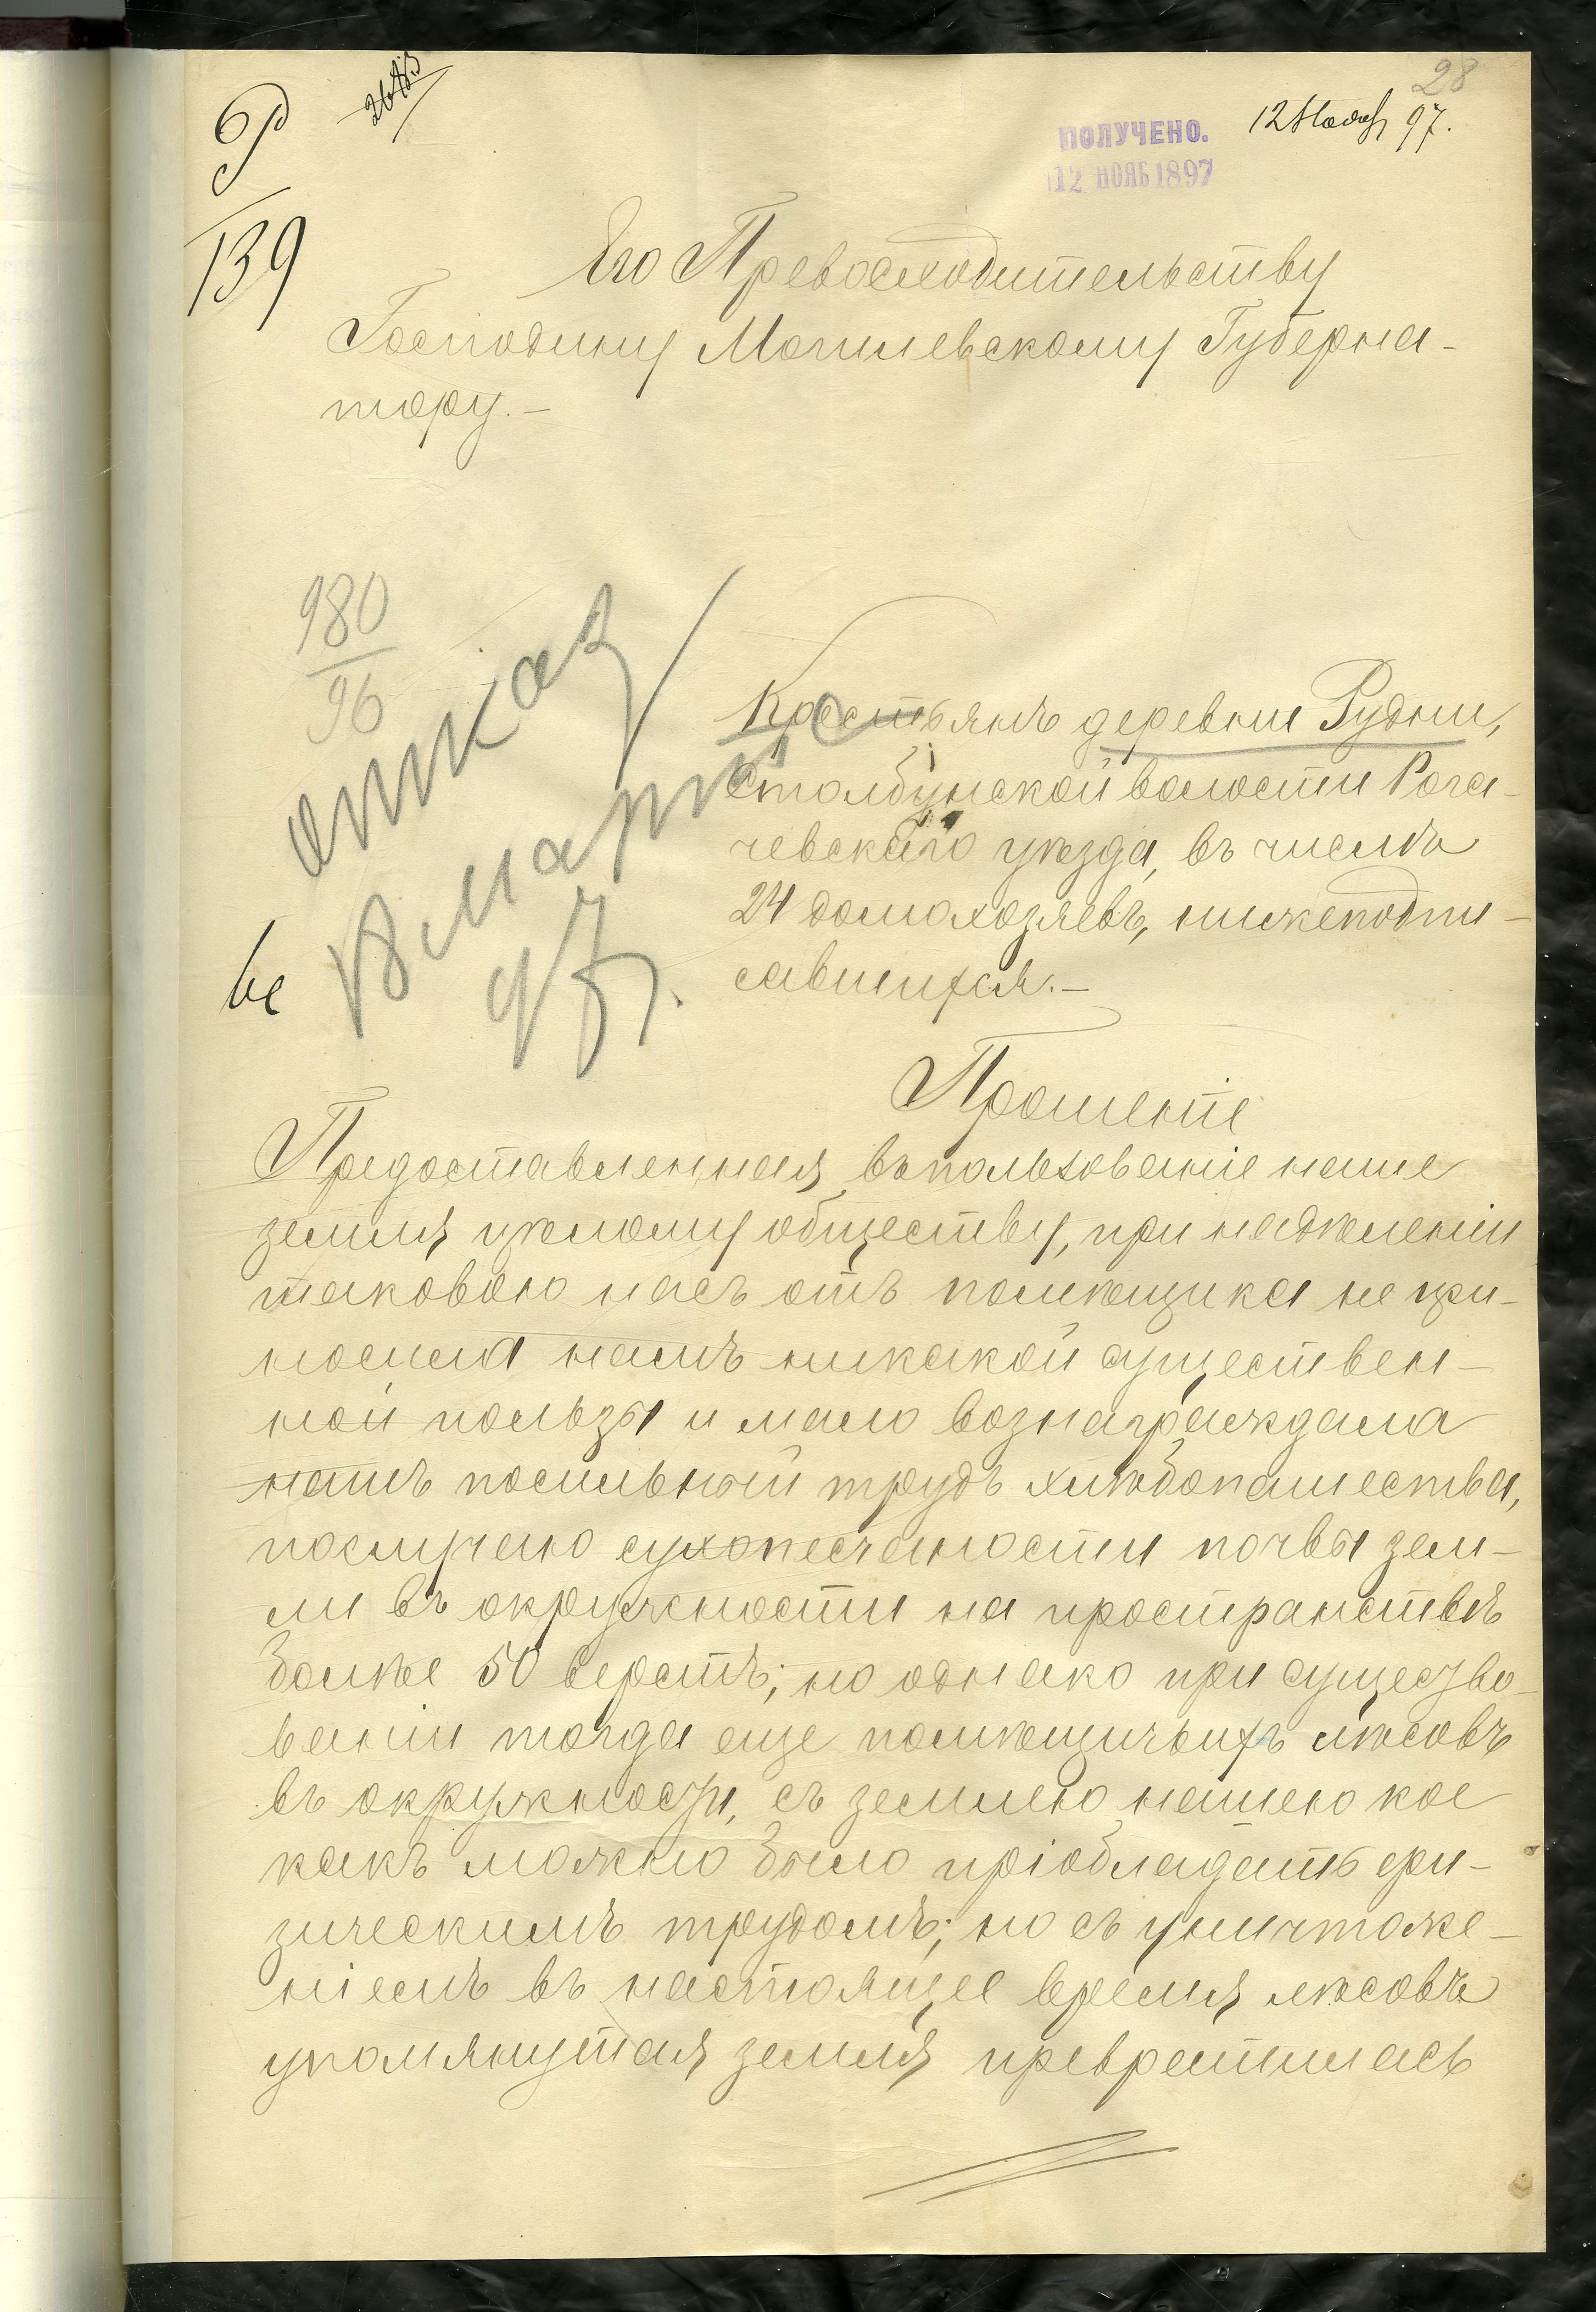 28
12 Нояб 97.
ПОЛУЧЕНО.
12 НОЯБ 1897
Р
139
Его Превосходительству
Господину Могилевскому Губерна-
тору.-
980
96
отказ
в марте
97.
Крестьянъ деревни Рудни,
Столбунской волости Рога-
чевскаго уѣзда, въ числѣ
24 домохозяевъ, нижеподпи-
савшихся.-
Прошеніе
Предоставленная въ пользованіе наше
земля цѣлому обществу, при надѣленіи
таковою насъ отъ помѣщика не при-
носила намъ никакой существен-
ной пользы и мало вознаграждала
нашъ посильный трудъ хлѣбопашества,
послучаю сухопесчаности почвы зем-
ли въ окружности на пространствѣ
болѣе 50 верстъ; но однако при существо-
ваніи тогда еще помѣщичьихъ лѣсовъ
въ окружности, съ землею нашею кое
какъ можно было пріобладать фи-
зическимъ трудомъ; но съ уничтоже-
ніемъ въ настоящее время лѣсовъ
упомянутая земля превратилась